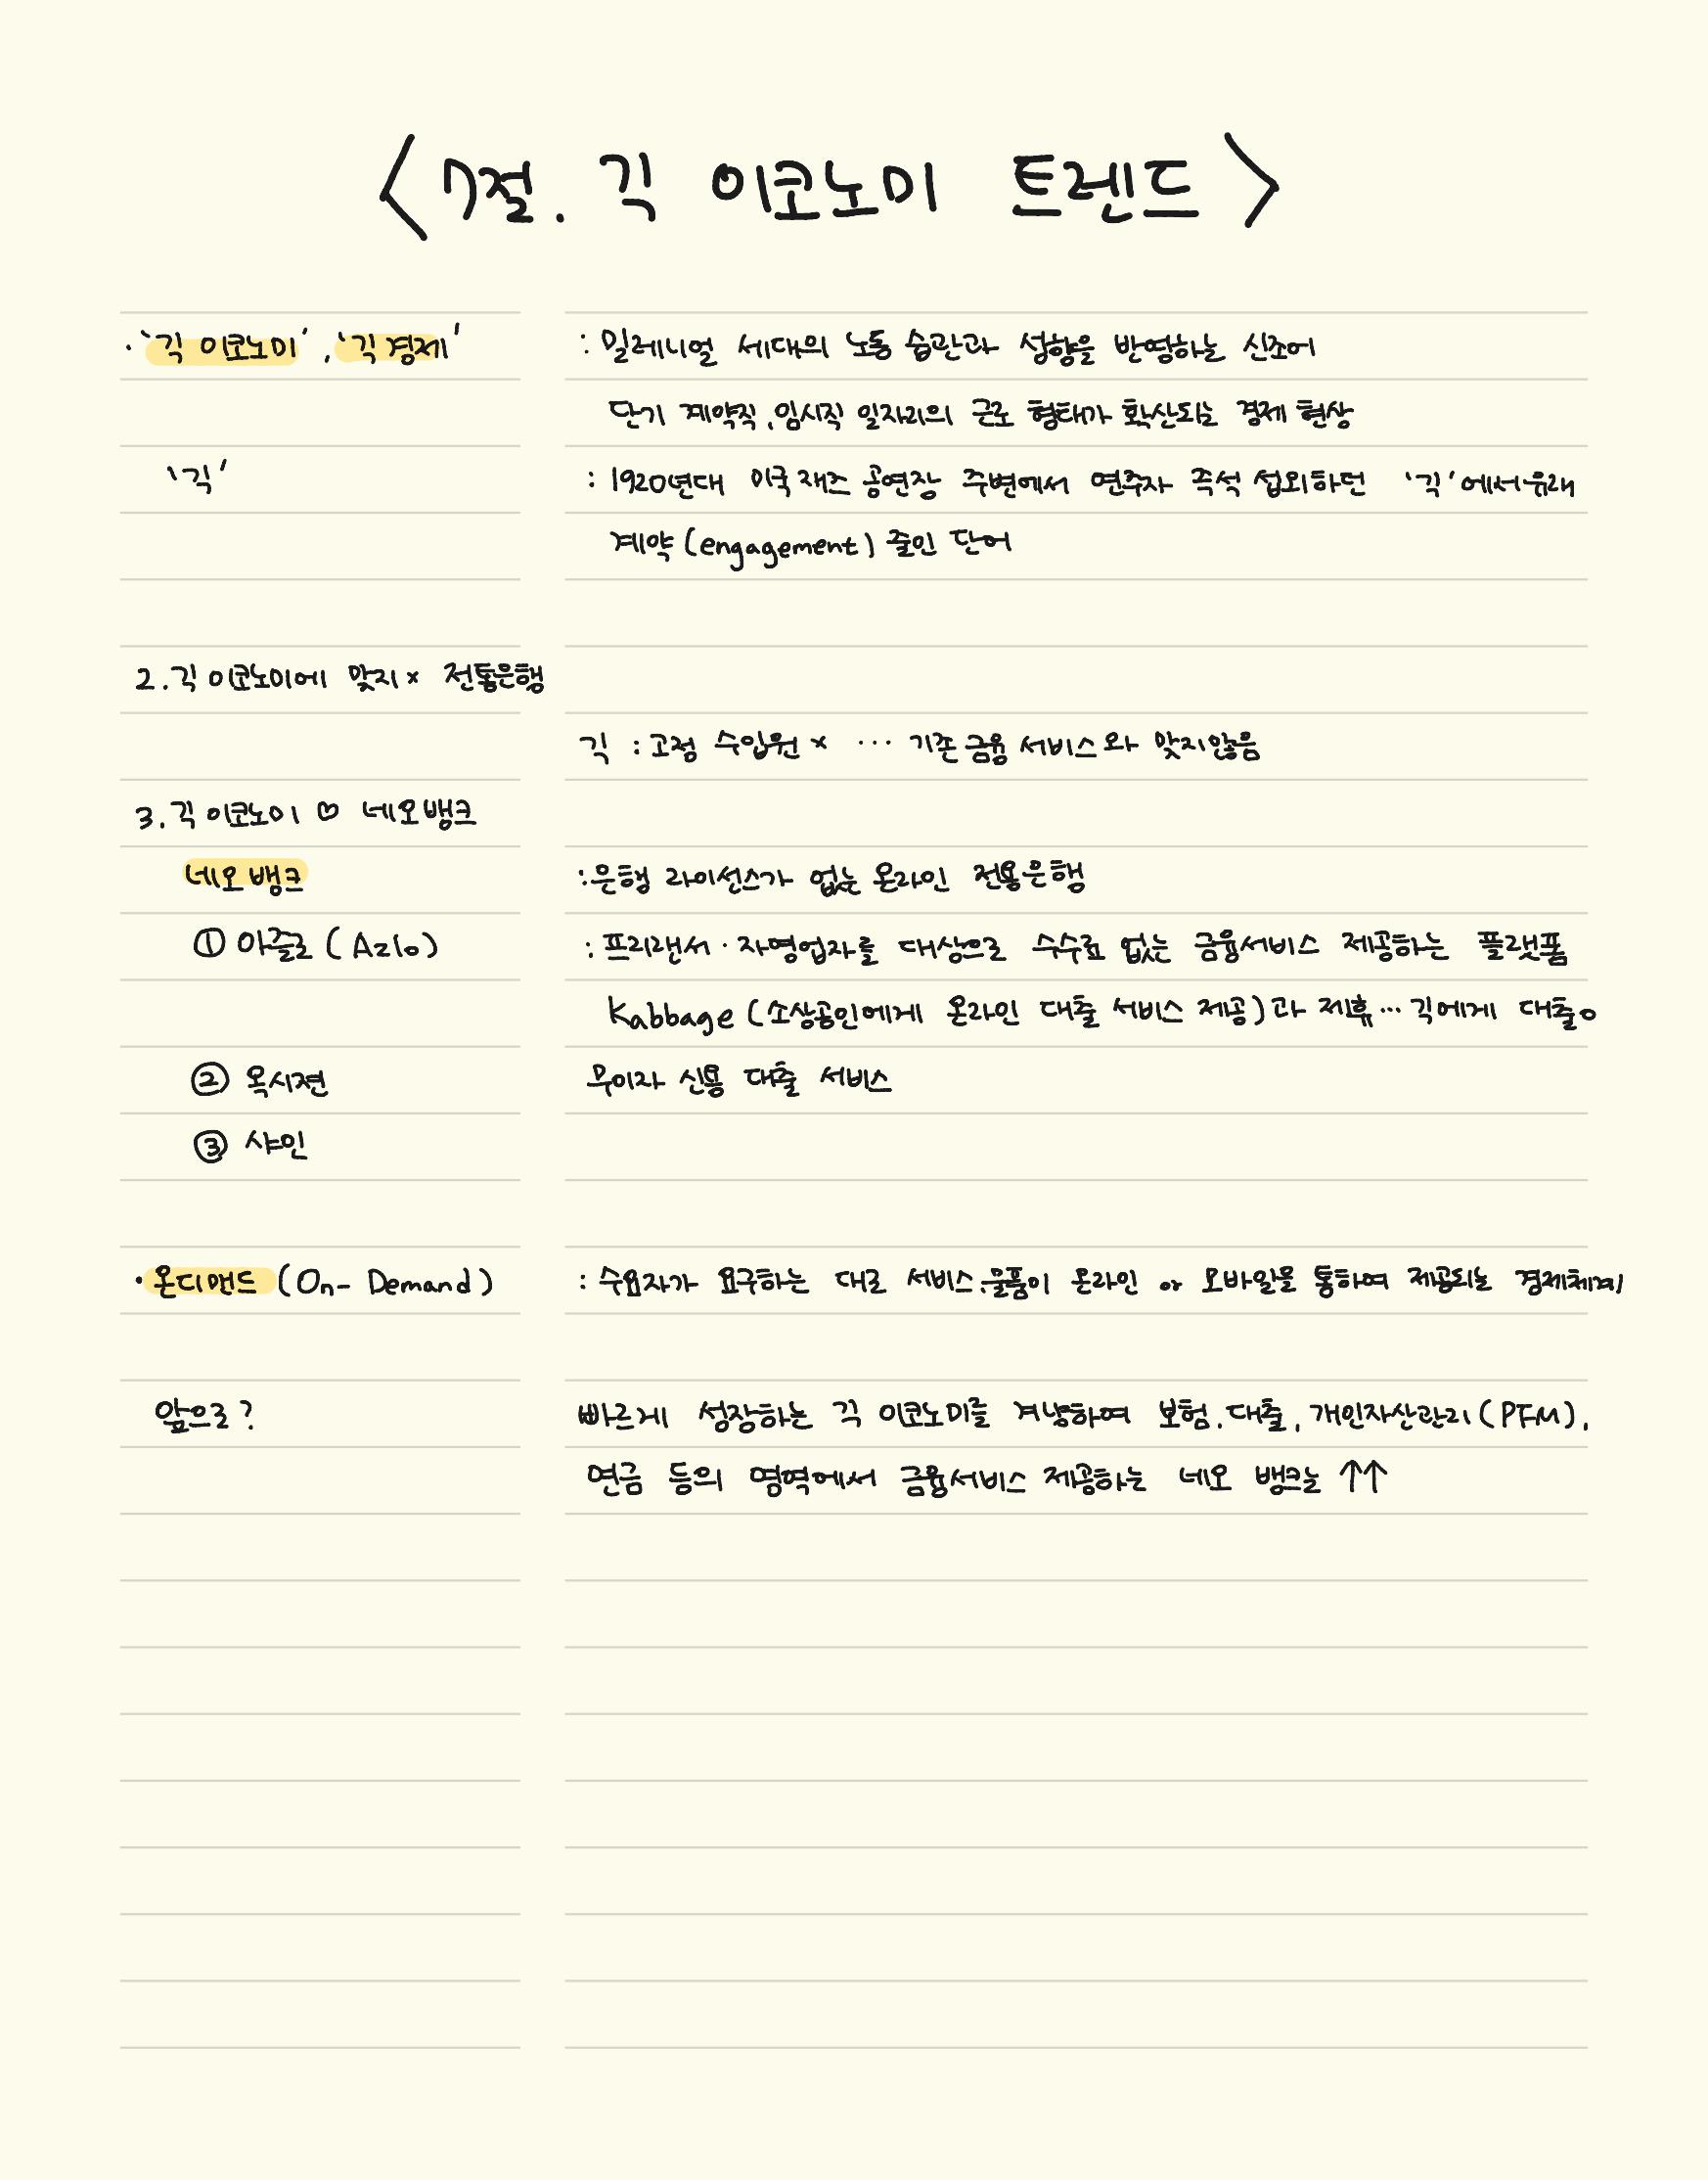 <7절. 긱 이코노미 트렌드>
· '긱 이코노미', '긱 경제' : 밀레니얼 세대의 노동 습관과 성향을 반영하는 신조어
단기 계약직, 임시직 일자리의 근로 형태가 확산되는 경제 현상
'긱' : 1920년대 미국 재즈 공연장 주변에서 연주자 즉석 섭외하던 '긱'에서 유래
계약(engagement) 줄인 단어
2. 긱 이코노미에 맞지 × 전통은행
긱 : 고정 수입원 × ··· 기존 금융 서비스와 맞지않음
3. 긱 이코노미 ♡ 네오뱅크
네오뱅크 : 은행 라이선스가 없는 온라인 전용은행
① 아줄로 (Azlo) : 프리랜서·자영업자를 대상으로 수수료 없는 금융서비스 제공하는 플랫폼
Kabbage (소상공인에게 온라인 대출 서비스 제공)과 제휴 ··· 긱에게 대출○
② 옥시젼 무이자 신용 대출 서비스
③ 샤인
· 온디맨드 (On-Demand) : 수요자가 요구하는 대로 서비스.물품이 온라인 or 모바일을 통하여 제공되는 경제체계
앞으로? 빠르게 성장하는 긱 이코노미를 겨냥하여 보험, 대출, 개인자산관리(PFM),
연금 등의 영역에서 금융서비스 제공하는 네오 뱅크는 ↑↑